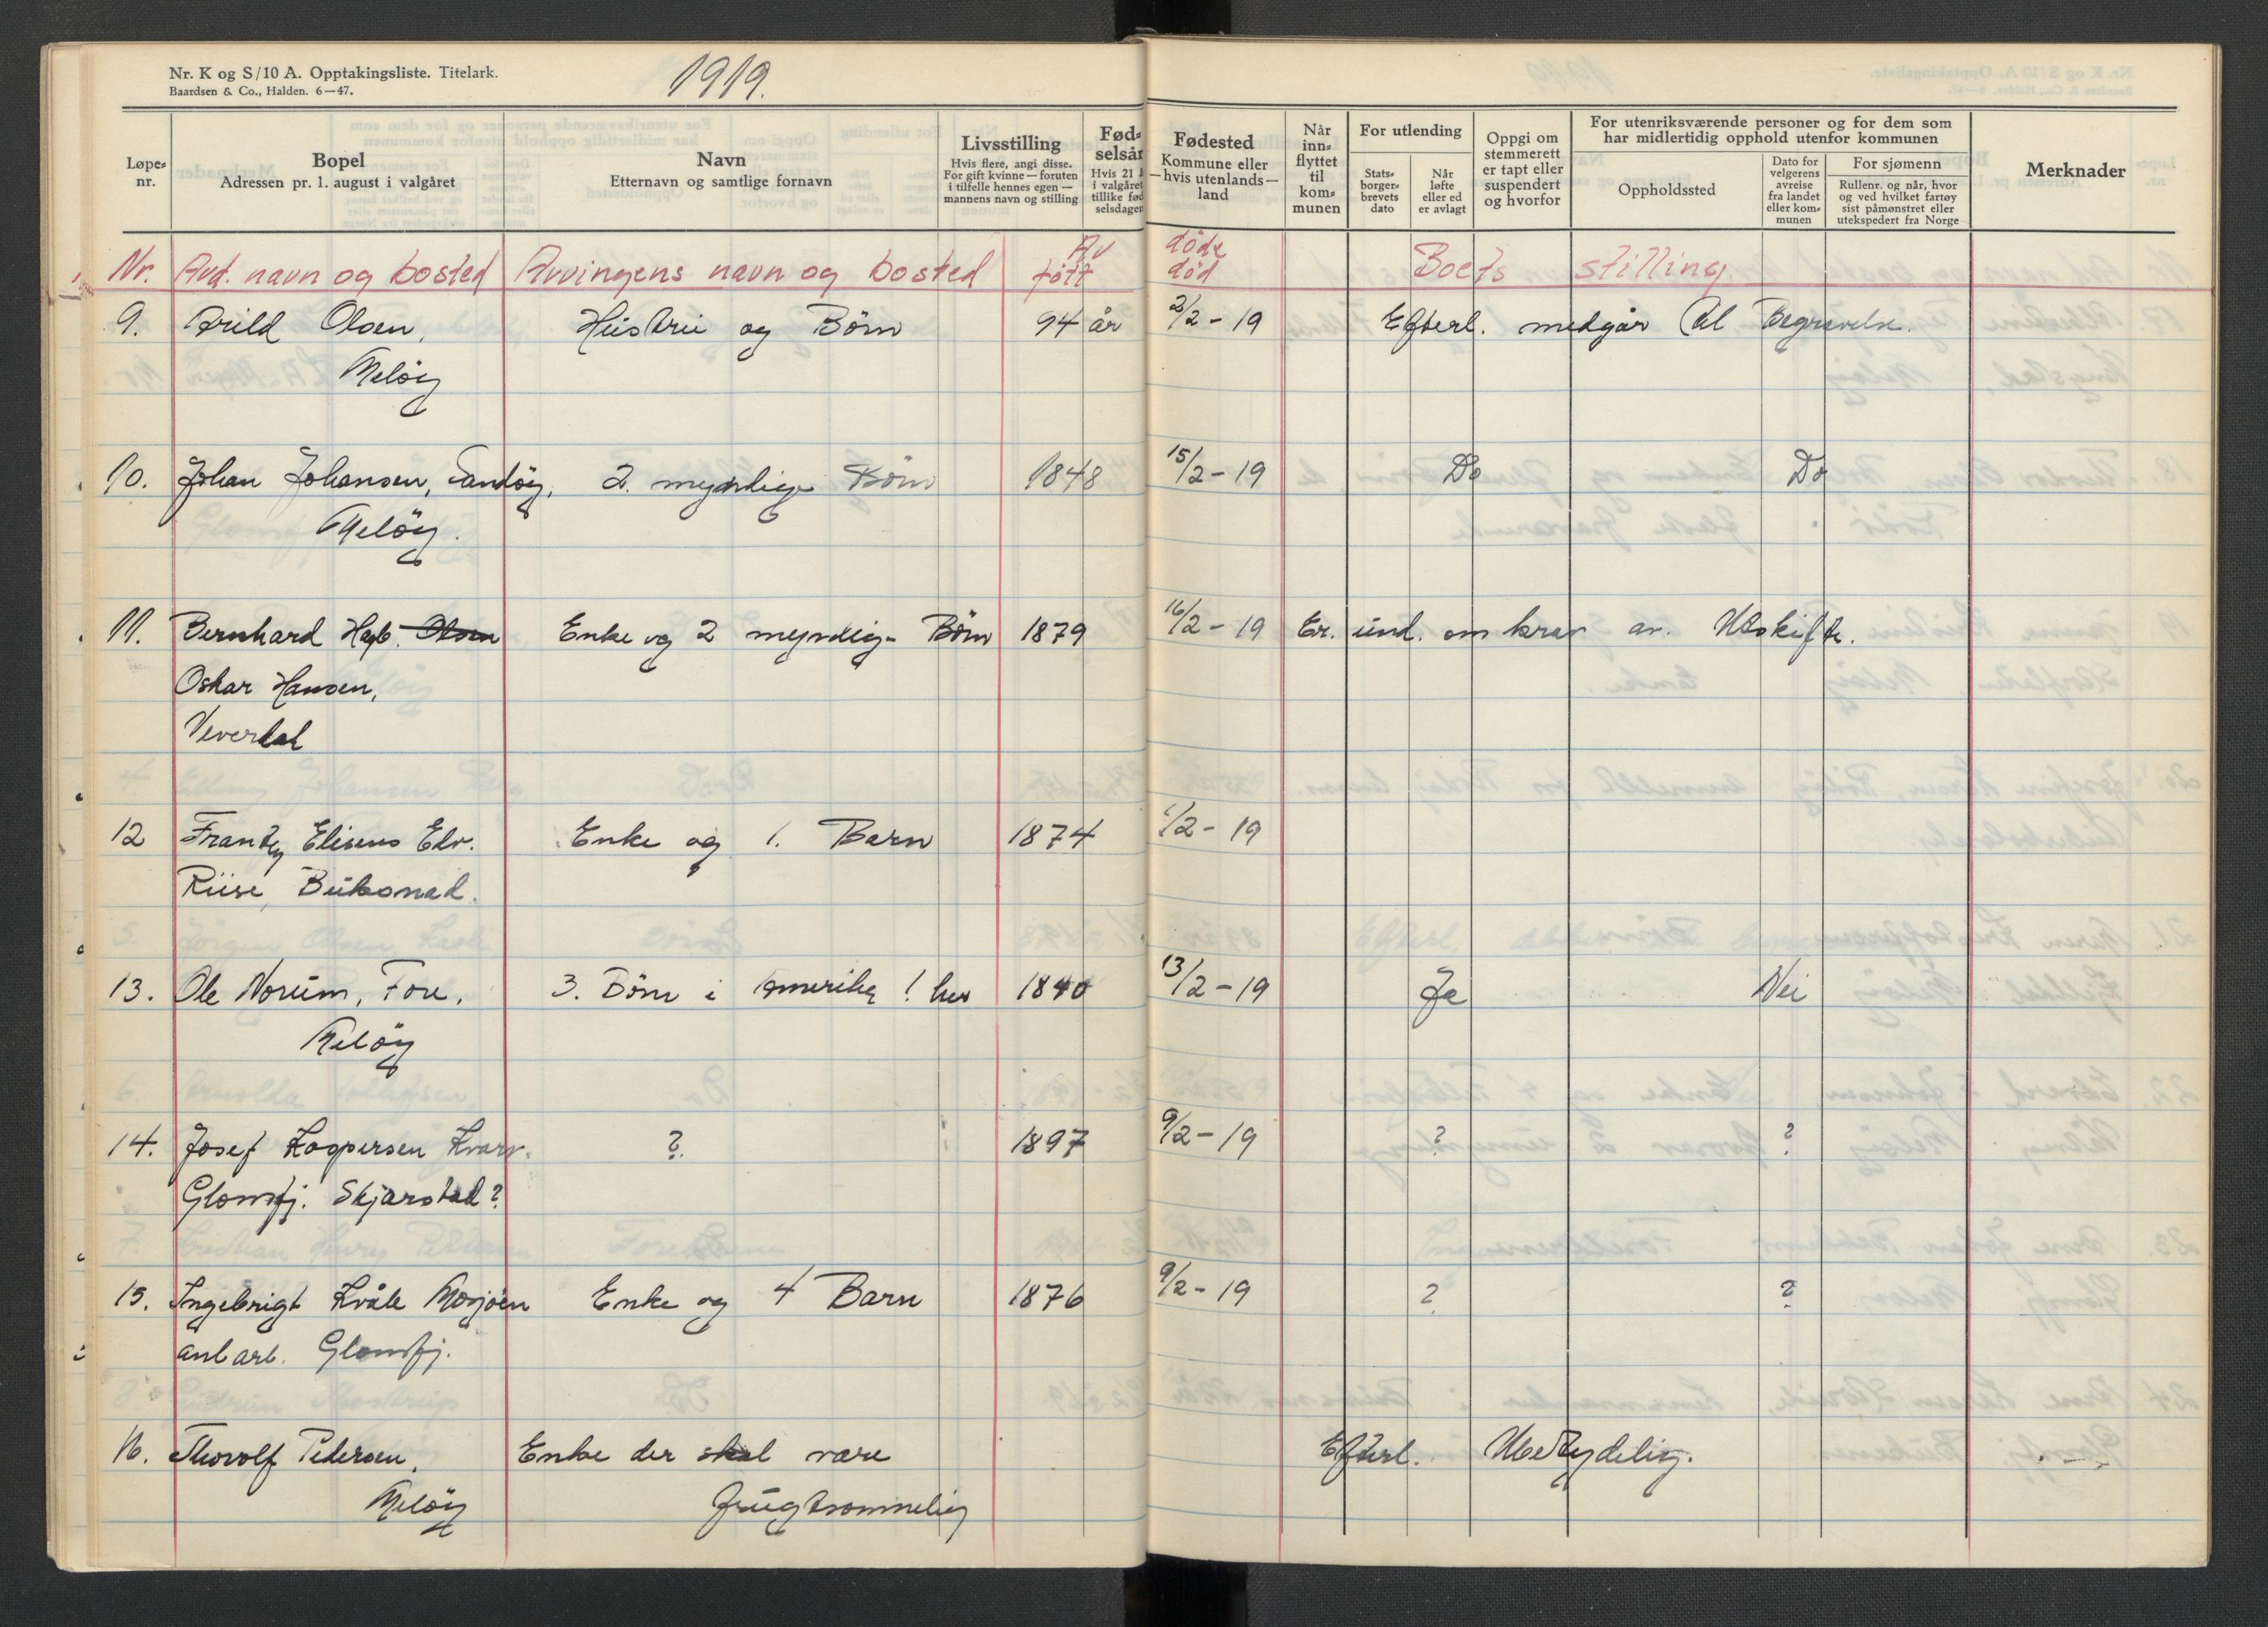 Nr. K og S/10 A. Opptakingsliste. Titelark.
Baardsen & Co., Halden. 6—47.
1919.
Løpe-nr.
Bopel
Adressen pr. 1. august i valgåret
Navn
Etternavn og samtlige fornavn
Livsstilling
Hvis flere, angi disse.
For gift kvinne — foruten
i tilfelle hennes egen —
mannens navn og stilling
Fød-
selsår
Hvis 21 å
i valgåret
tillike fød
selsdagen
Fødested
Kommune eller
—hvis utenlands—
land
Når
inn-
flyttet
til
kom-
munen
For utlending
Stats-
borger-
brevets
dato
Når
løfte
eller ed
er avlagt
Oppgi om
stemmerett
er tapt eller
suspendert
og hvorfor
For utenriksværende personer og for dem som
har midlertidig opphold utenfor kommunen
Oppholdssted
Dato for
velgerens
avreise
fra landet
eller kom-
munen
For sjømenn
Rullenr. og når, hvor
og ved hvilket fartøy
sist påmønstret eller
utekspedert fra Norge
Merknader
Nr. Avd. navn og bosted Arvingens navn og bosted Av døde
født død Boets stilling.
9. Arild Olsen, Hüstrü og Börn 94 år 2/2-19 Efterl. medgår til Begravelse.
Melöy
10. Johan Johansen, Sandöy, 2. myndige Börn 1848 15/2-19 Do Do
Melöy.
11. Bernhard Hagb. Olsen Enke og 2 myndig- Börn 1879 16/2-19 Er. ünd. om krav av. Utskifte.
Oskar Hansen,
Neverdal
12 Frantz Eliseus Edv. Enke og 1. Barn 1874 1/2-19
Riise,
13. Ole Norüm, Fore, 3. Börn i Amerika 1 her 1840 13/2-19 Ja Nei
Melöy
14. Josef Kaspersen Kvarv. ? 1897 9/2-19 ? ?
Glomfj. Skjærstad?
15. Ingebrigt Kvåle Mosjöen Enke og 4 Barn 1876 9/2-19 ? ?
anl arb. Glomfj.
16. Thorolf Pedersen, Enke der skal være Efterl. Ubetydelig.
Melöy frügtsommelig